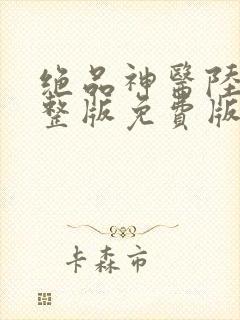 绝品神医陸
整版免費版
卡森市